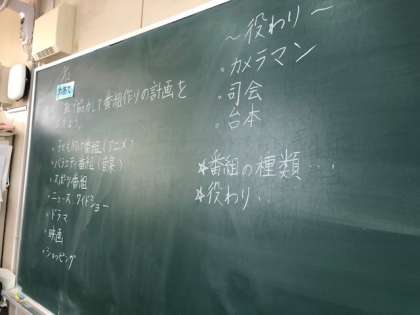 協力して番組作りの計画を
・子ども向け番組(アニメ)
・バラエティ番組(音楽)
・スポーツ番組
・ニュース:ワイドショー
・ドラマ
・映画
・ショッピング
～役わり～
・カメラマン
・司会
・台本
*番組の種類・・・
*役わり・・